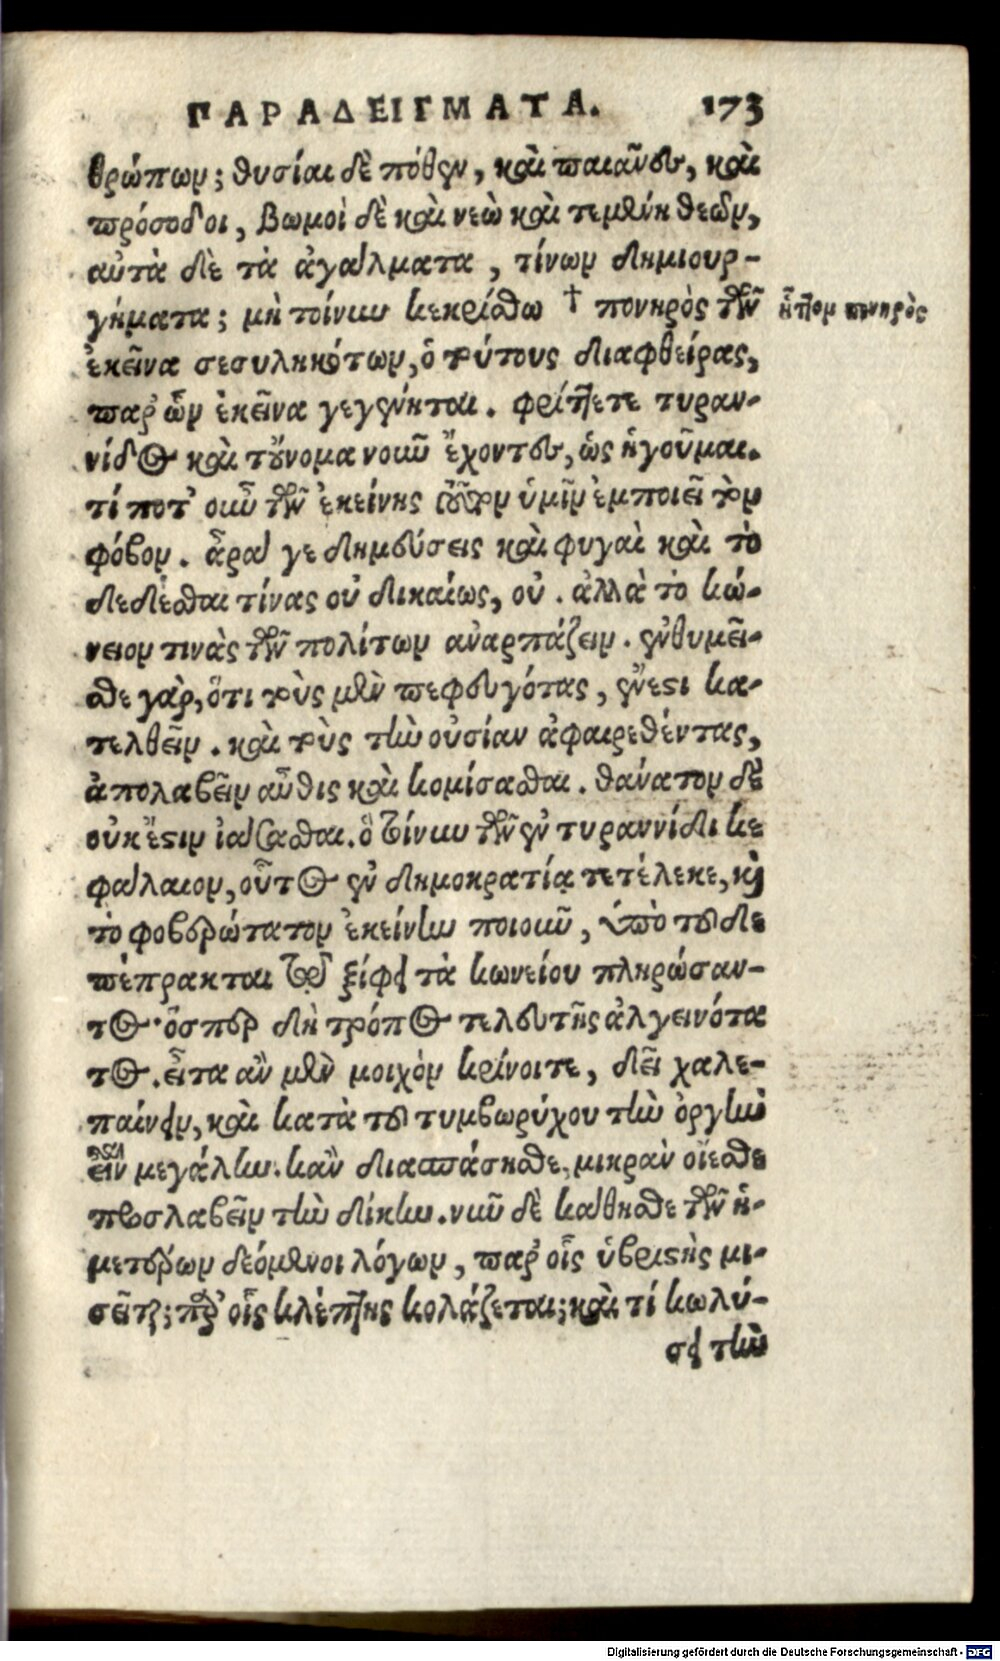 ΠΑΡΑΔΕΙΓΜΑΤΑ. 173
θρώπων; θυσίαι δὲ πόθεν, καὶ παιᾶνες, καὶ
πρόσοδοι, βωμοὶ δὲ καὶ νεῲ καὶ τεμένη θεῶν,
αὐτὰ δὲ τὰ ἀγάλματα, τίνων δημιουρ-
γήματα; μὴ τοίνυν κεκρίσθω † πονηρὸς τῶν ἧττον πονηρὸς
ἐκεῖνα σεσυληκότων, ὁ τούτους διαφθείρας,
παρ' ὧν ἐκεῖνα γεγένηται. φρίττετε τυραν-
νίδος καὶ τοὔνομα νοῦν ἔχοντες, ὡς ἡγοῦμαι.
τί ποτ' οὖν τῶν ἐκείνης τοῦτον ὑμῖν ἐμποιεῖ τὸν
φόβον. ἆρά γε δημεύσεις καὶ φυγαὶ καὶ τὸ
δεδέσθαι τίνας οὐ δικαίως, οὐ. ἀλλὰ τὸ κώ-
νειον τινὰς τῶν πολίτων αναρπάζειν. ἐνθυμεῖ-
σθε γὰρ, ὅτι τοὺς μὲν πεφευγότας, ἔνεστι κα-
τελθεῖν. καὶ τοὺς τὴν οὐσίαν ἀφαιρεθέντας,
ἀπολαβεῖν αὖθις καὶ κομίσασθαι. θάνατον δὲ
οὐκ ἔστιν ἰάσασθαι. ὃ τοίνυν τῶν ἐν τυραννίδι κε
φάλαιον, οὗτος ἐν δημοκρατίᾳ τετέλεκε, καὶ
τὸ φοβερώτατον ἐκείνην ποιοῦν, ὑπὸ τοῦδε
πέπρακται τοῦ ξίφει τὰ κωνείου πληρώσαν-
τος· ὅσπερ δὴ τρόπος τελευτῆς ἀλγεινότα
τος. εἶτα ἂν μὲν μοιχὸν κρίνοιτε, δεῖ χαλε-
παίνειν, καὶ κατὰ τοῦ τυμβωρύχου τὴν ὀργὴν
εἶναι μεγάλην. κἂν διασπάσησθε, μικρὰν οἴεσθε
προσλαβεῖν τὴν δίκην. νῦν δὲ κάθησθε τῶν ἡ-
μετέρων δεόμενοι λόγων, παρ' οἷς ὑβριστὴς μι-
σεῖται; παρ' οἷς κλέπτης κολάζεται; καὶ τί κωλύ-
σει τὴν
Digitalisierung gefördert durch die Deutsche Forschungsgemeinschaft - DFG